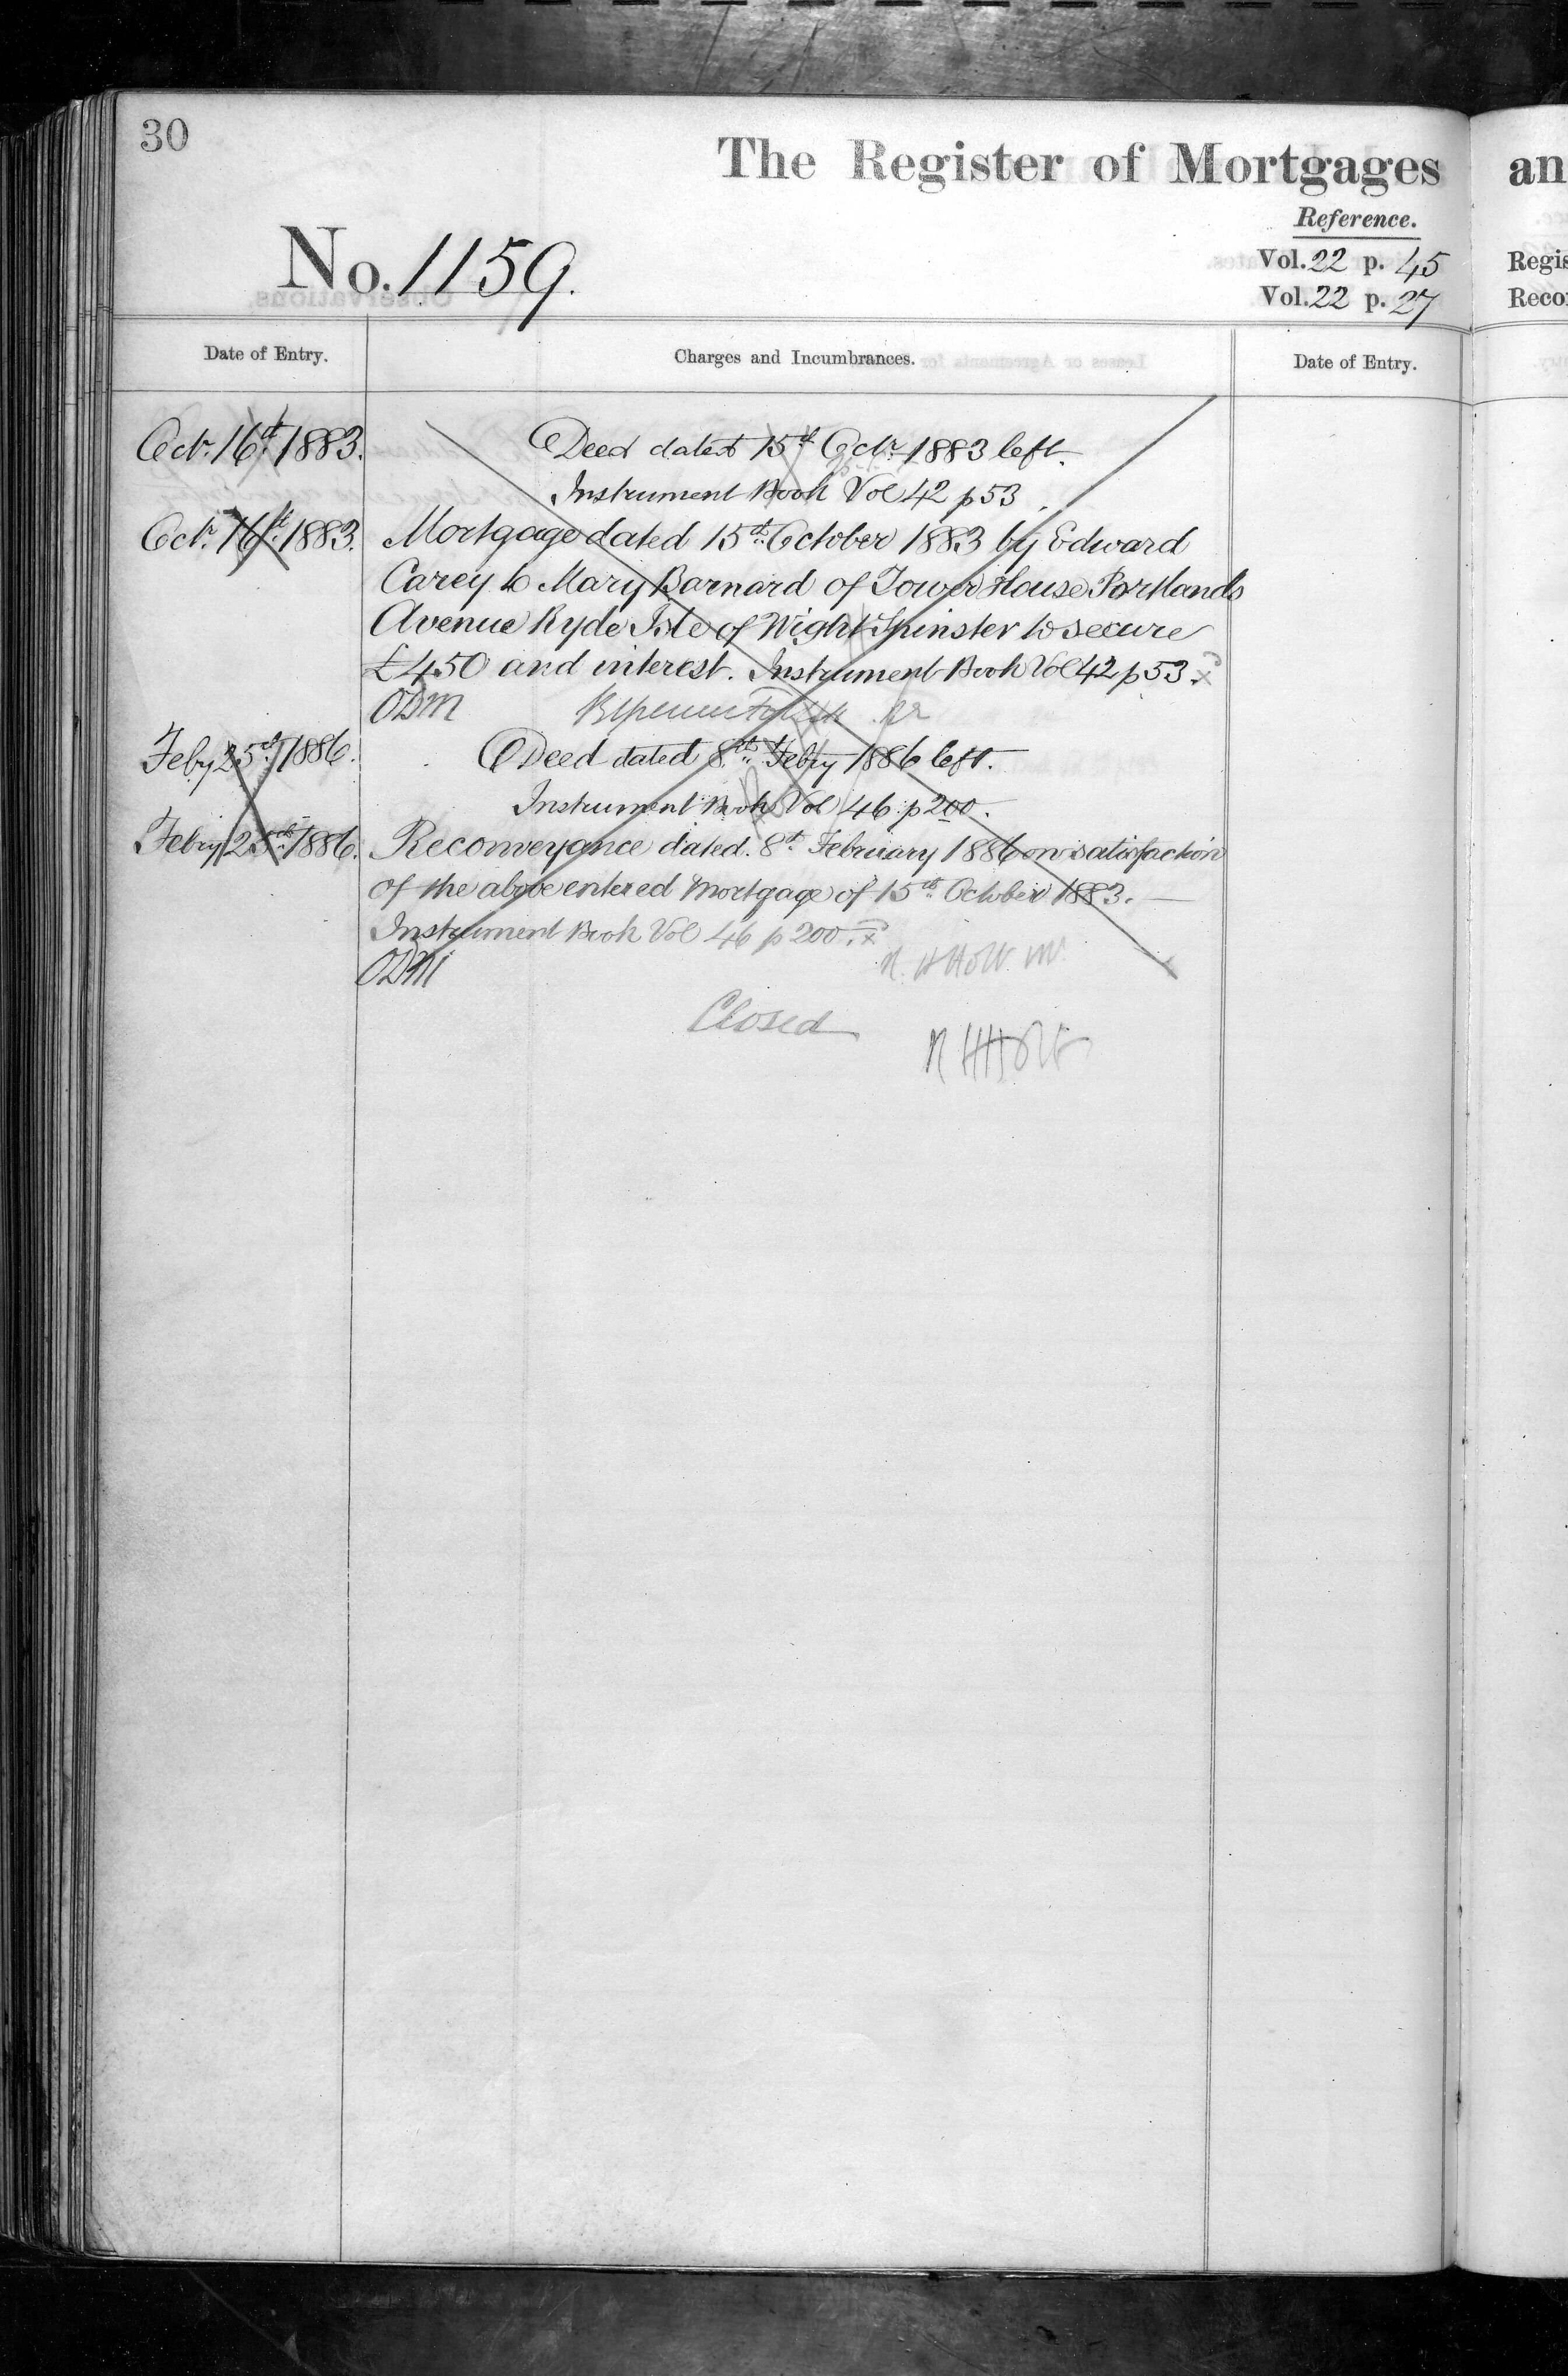 30
The Register of Mortgages an
Reference.
No. 1159.
Vol. 22 p. 45 Regis
Vol. 22 p. 27 Reco
Date of Entry. Charges and Incumbrances. Date of Entry.
Octr. 16th 1883. Deed dated 15th Octr. 1883 left.
Instrument Book Vol 42 p 53.
Octr. 16th 1883. Mortgage dated 15th October 1883 by Edward
Carey to Mary Barnard of Tower House Partlands
Avenue Ryde Isle of Wight Spinster to secure
£450 and interest. Instrument Book Vol 42 p 53. x
ODM
Feby 25th 1886. Deed dated 8th Febry 1886 left.
Instrument Book Vol 46 p 200.
Febry 25th 1886. Reconveyance dated 8th February 1886 on satisfaction
of the above entered Mortgage of 15th October 1883.—
Instrument Book Vol 46 p 200. x
ODM
Closed